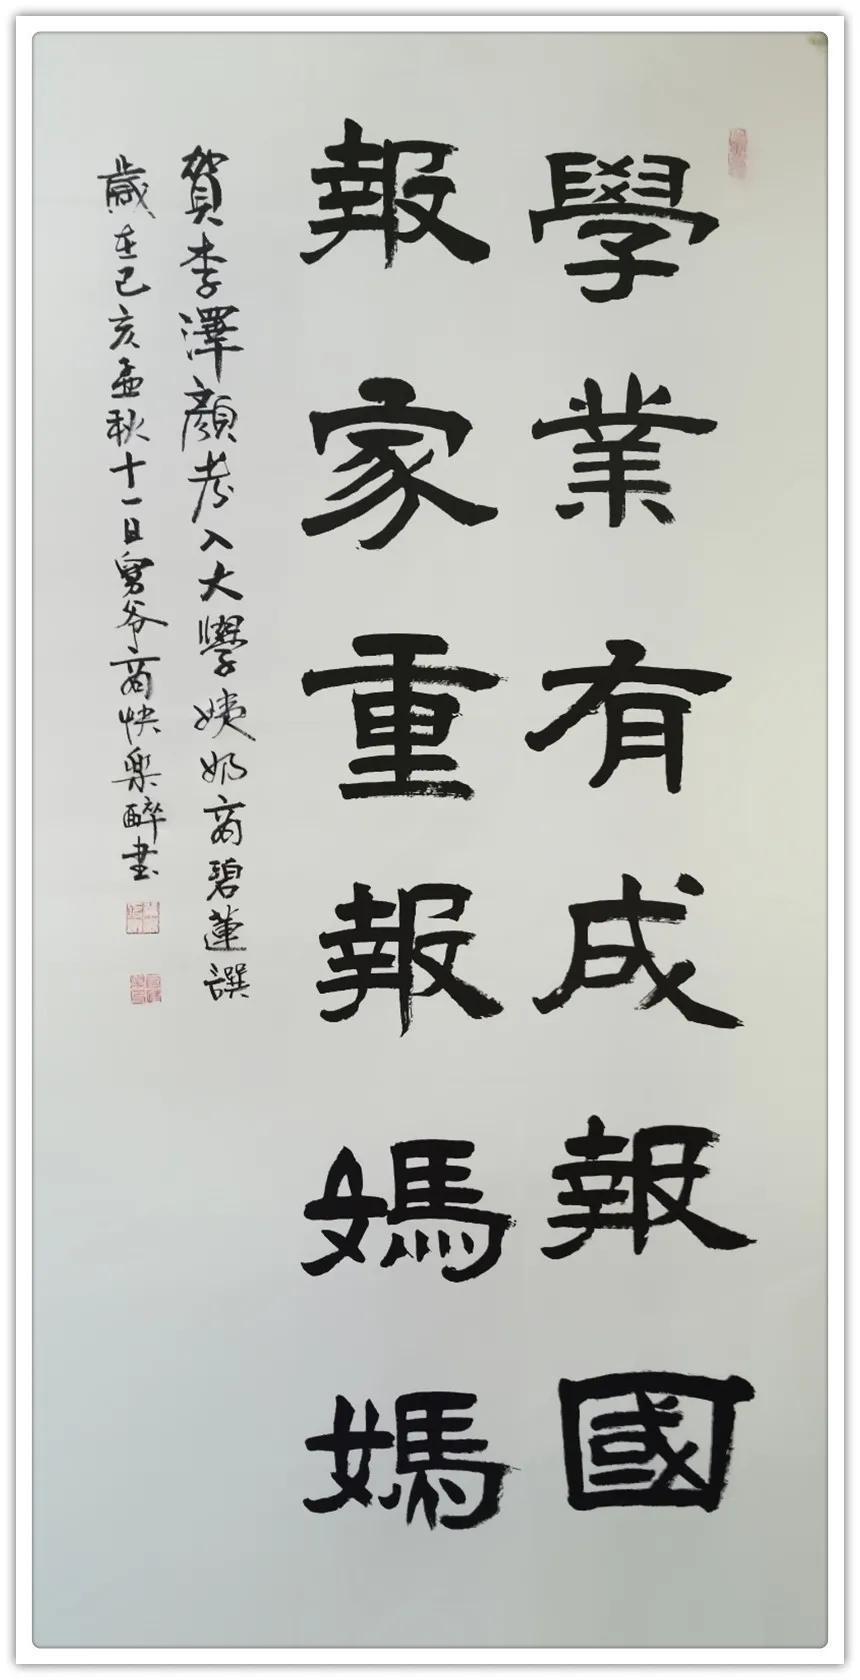 學業有成報國
報家重報媽媽
賀李澤顏考入大學姨奶商碧蓮譔
歲在己亥孟秋十一日舅爷商快樂醉書